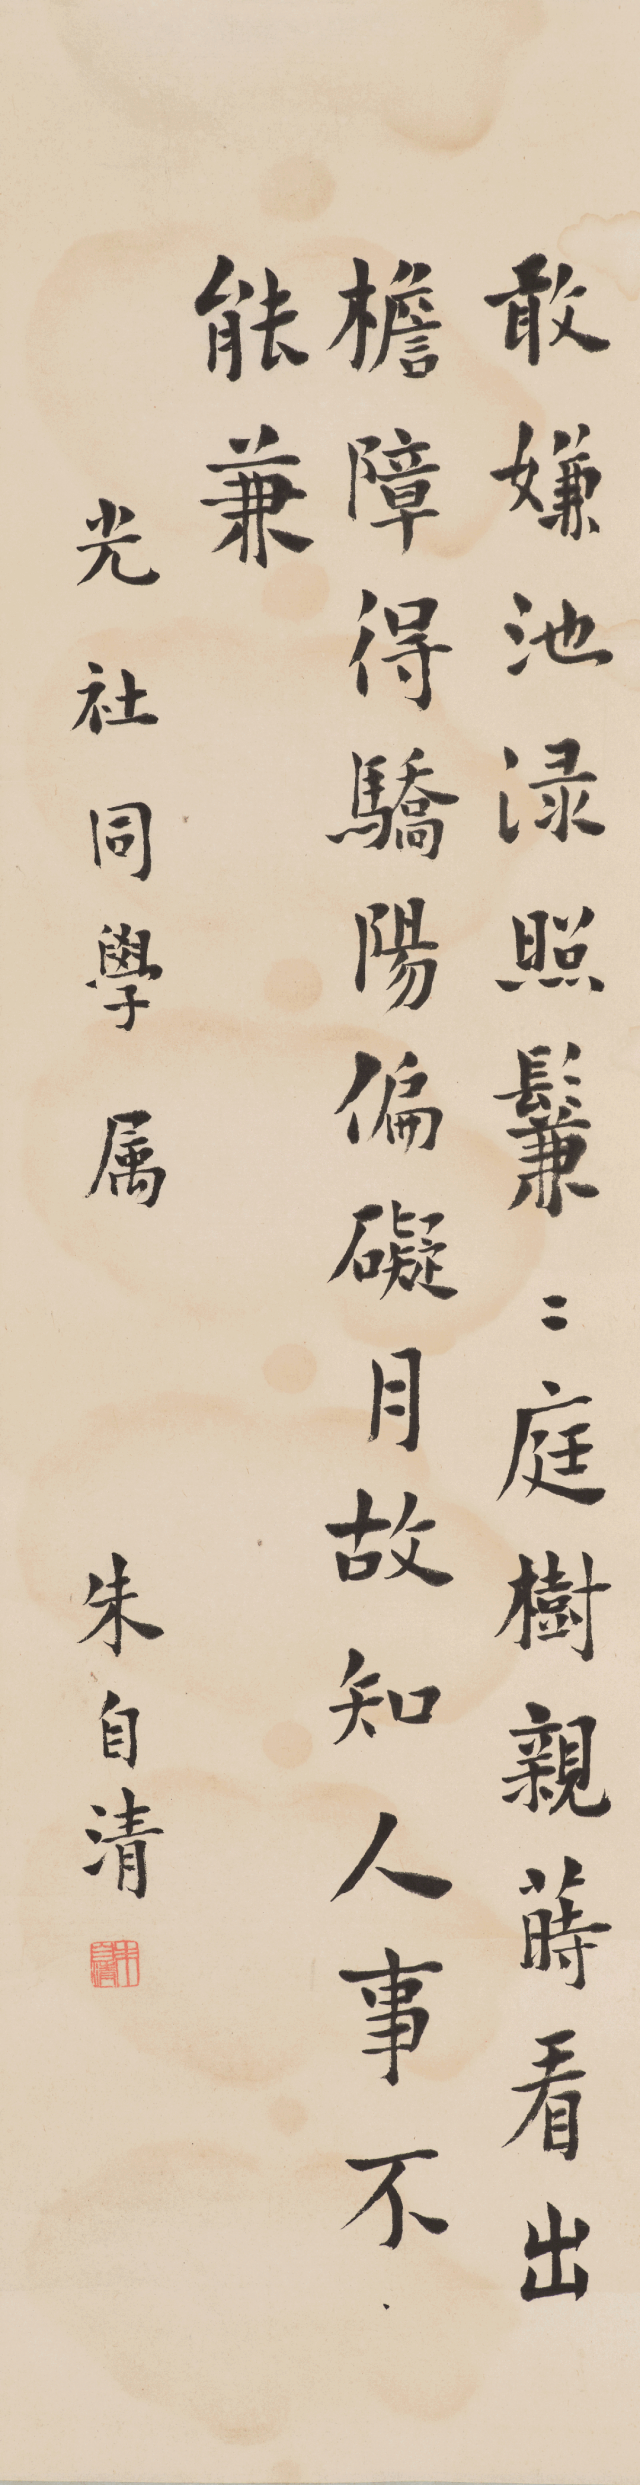 敢嫌池渌照鬑〻庭樹親蒔看出
檐障得驕陽偏礙月故知人事不
能兼
光社同學属 朱自清
朱自清